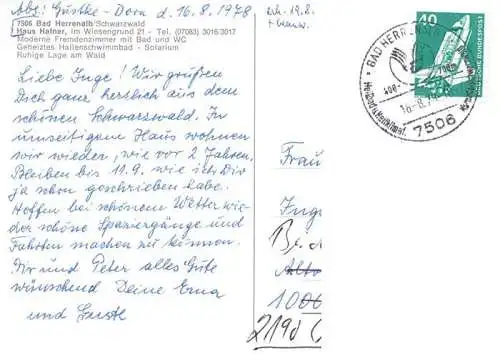 Abs: Gustke-Dorn d. 16.8.1978
7506 Bad Herrenalb/Schwarzwald
Haus Hafner, im Wiesengrund 21 - Tel. (07083) 3016/3017
Moderne Fremdenzimmer mit Bad und WC
Geheiztes Hallenschwimmbad - Solarium
Ruhige Lage am Wald
Liebe Inge! Wir grüßen
Dich ganz herzlich aus dem
schönen Schwarzwald. In
umseitigem Haus wohnen
wir wieder, wie vor 2 Jahren.
Bleiben bis 11.9. wie ich Dir
ja schon geschrieben habe.
Hoffen bei schönem Wetter wie-
der schöne Spaziergänge und
Fahrten machen zu können.
Dir und Peter alles Gute
wünschend Deine Erna
und Guste
erh. 19.8.
BAD HERRENALB
7506
40
DEUTSCHE BUNDESPOST
Frau
Inge
2190